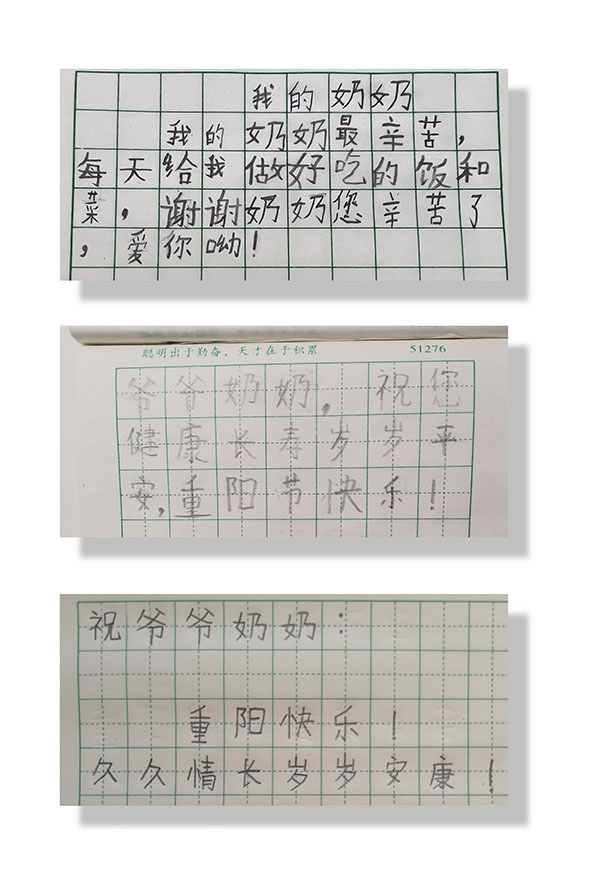 我的奶奶
我的奶奶最辛苦，
每天给我做好吃的饭和
菜，谢谢奶奶您辛苦了
，爱你呦！
聪明出于勤奋，天才在于积累 51276
爷爷奶奶，祝您
健康长寿岁岁平
安，重阳节快乐！
祝爷爷奶奶：
重阳快乐！
久久情长岁岁安康！